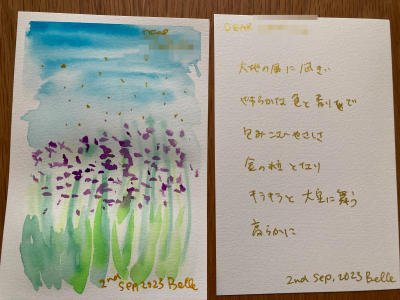 DEAR
2nd Sep, 2023 Belle
DEAR
大地の風に向き
やわらかな 色と香りで
包みこむやさしさ
金の粒となり
キラキラと 大空に舞う
高らかに
2nd Sep, 2023 Belle